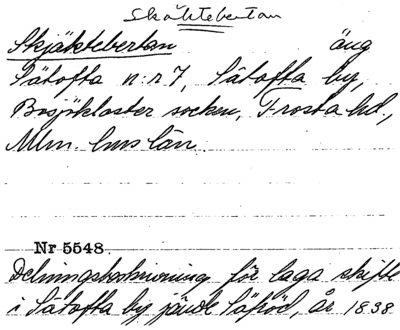 Skäktebertan
Skjäktebertan äng
Sätofta n:r 7, Sätofta by,
Bosjökloster socken, Frosta hd.,
Mlm. hus län.
Nr 5548.
Delningsbeskrivning för laga skifte
i Sätofta by jämte Säteröd, år 1838